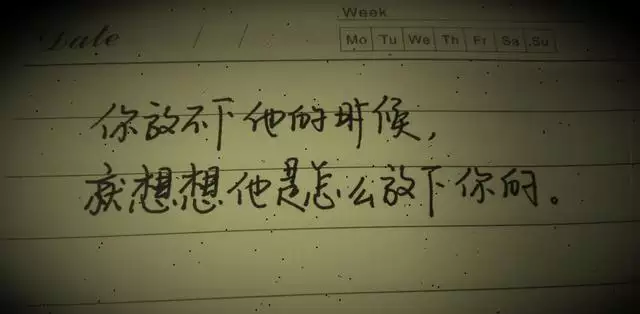 Week
Date / /
Mo Tu We Th Fr Sa Su
你放不下他的时候，
就想想他是怎么放下你的。